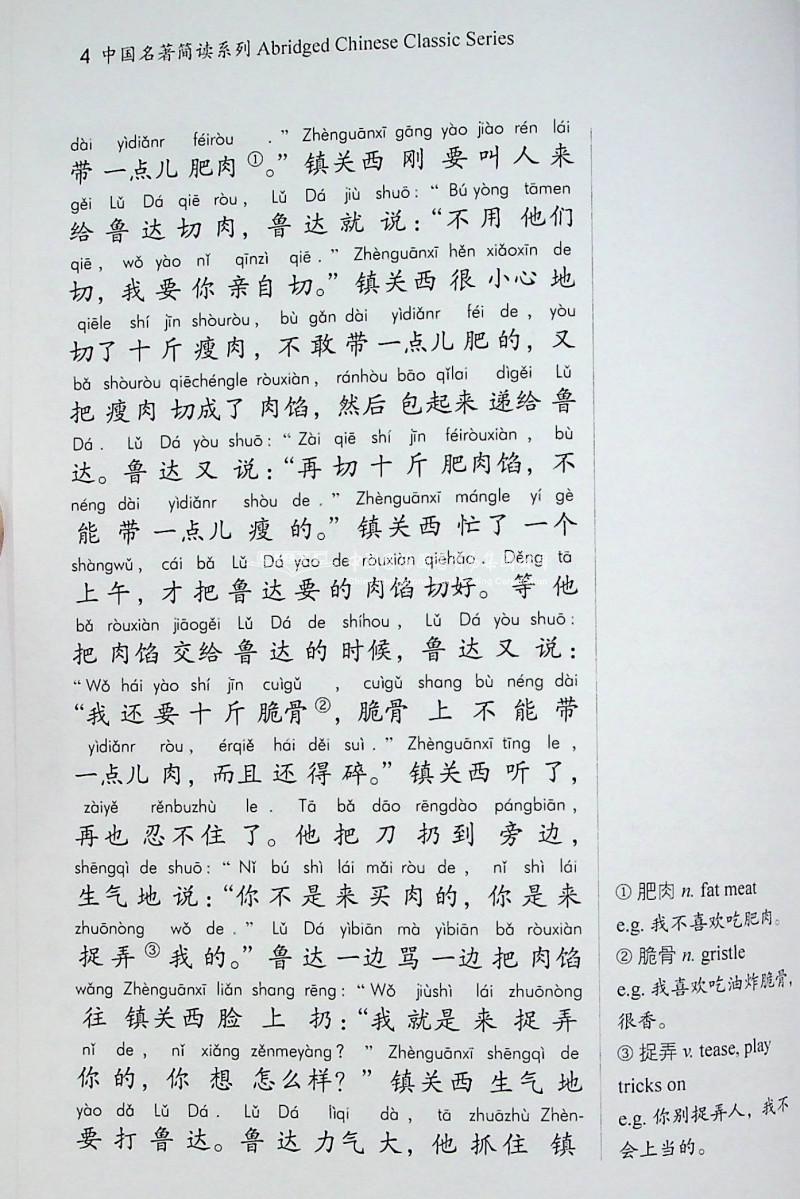 4 中国名著简读系列 Abridged Chinese Classic Series
dài yìdiǎnr féiròu .” Zhènguānxī gāng yào jiào rén lái
带一点儿肥肉①。”镇关西刚要叫人来
gěi Lǔ Dá qiē ròu, Lǔ Dá jiù shuō: “Bú yòng tāmen
给鲁达切肉,鲁达就说:“不用他们
qiē, wǒ yào nǐ qīnzì qiē.” Zhènguānxī hěn xiǎoxīn de
切,我要你亲自切。”镇关西很小心地
qiēle shí jīn shòuròu, bù gǎn dài yìdiǎnr féi de, yòu
切了十斤瘦肉,不敢带一点儿肥的,又
bǎ shòuròu qiēchéngle ròuxiàn, ránhòu bāo qǐlai dìgěi Lǔ
把瘦肉切成了肉馅,然后包起来递给鲁
Dá. Lǔ Dá yòu shuō: “Zài qiē shí jīn féiròuxiàn, bù
达。鲁达又说:“再切十斤肥肉馅,不
néng dài yìdiǎnr shòu de.” Zhènguānxī mángle yí gè
能带一点儿瘦的。”镇关西忙了一个
shàngwǔ, cái bǎ Lǔ Dá yào de ròuxiàn qiēhǎo. Děng tā
上午,才把鲁达要的肉馅切好。等他
bǎ ròuxiàn jiāogěi Lǔ Dá de shíhou, Lǔ Dá yòu shuō:
把肉馅交给鲁达的时候,鲁达又说:
“Wǒ hái yào shí jīn cuìgǔ , cuìgǔ shang bù néng dài
“我还要十斤脆骨②,脆骨上不能带
yìdiǎnr ròu, érqiě hái děi suì.” Zhènguānxī tīng le,
一点儿肉,而且还得碎。”镇关西听了,
zàiyě rěnbuzhù le. Tā bǎ dāo rēngdào pángbiān,
再也忍不住了。他把刀扔到旁边,
shēngqì de shuō: “Nǐ bú shì lái mǎi ròu de, nǐ shì lái
生气地说:“你不是来买肉的,你是来
zhuōnòng wǒ de.” Lǔ Dá yìbiān mà yìbiān bǎ ròuxiàn
捉弄③我的。”鲁达一边骂一边把肉馅
wǎng Zhènguānxī liǎn shang rēng: “Wǒ jiùshì lái zhuōnòng
往镇关西脸上扔:“我就是来捉弄
nǐ de, nǐ xiǎng zěnmeyàng? ” Zhènguānxī shēngqì de
你的,你想怎么样?”镇关西生气地
yào dǎ Lǔ Dá. Lǔ Dá lìqi dà, tā zhuāzhù Zhèn-
要打鲁达。鲁达力气大,他抓住镇
① 肥肉 n. fat meat
e.g. 我不喜欢吃肥肉。
② 脆骨 n. gristle
e.g. 我喜欢吃油炸脆骨,
很香。
③ 捉弄 v. tease, play
tricks on
e.g. 你别捉弄人,我不
会上当的。